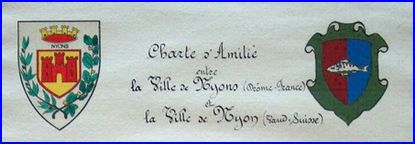 NYONS
Charte d'Amitié
entre
la Ville de Nyons (Drôme-France)
et
la Ville de Nyon (Vaud-Suisse)